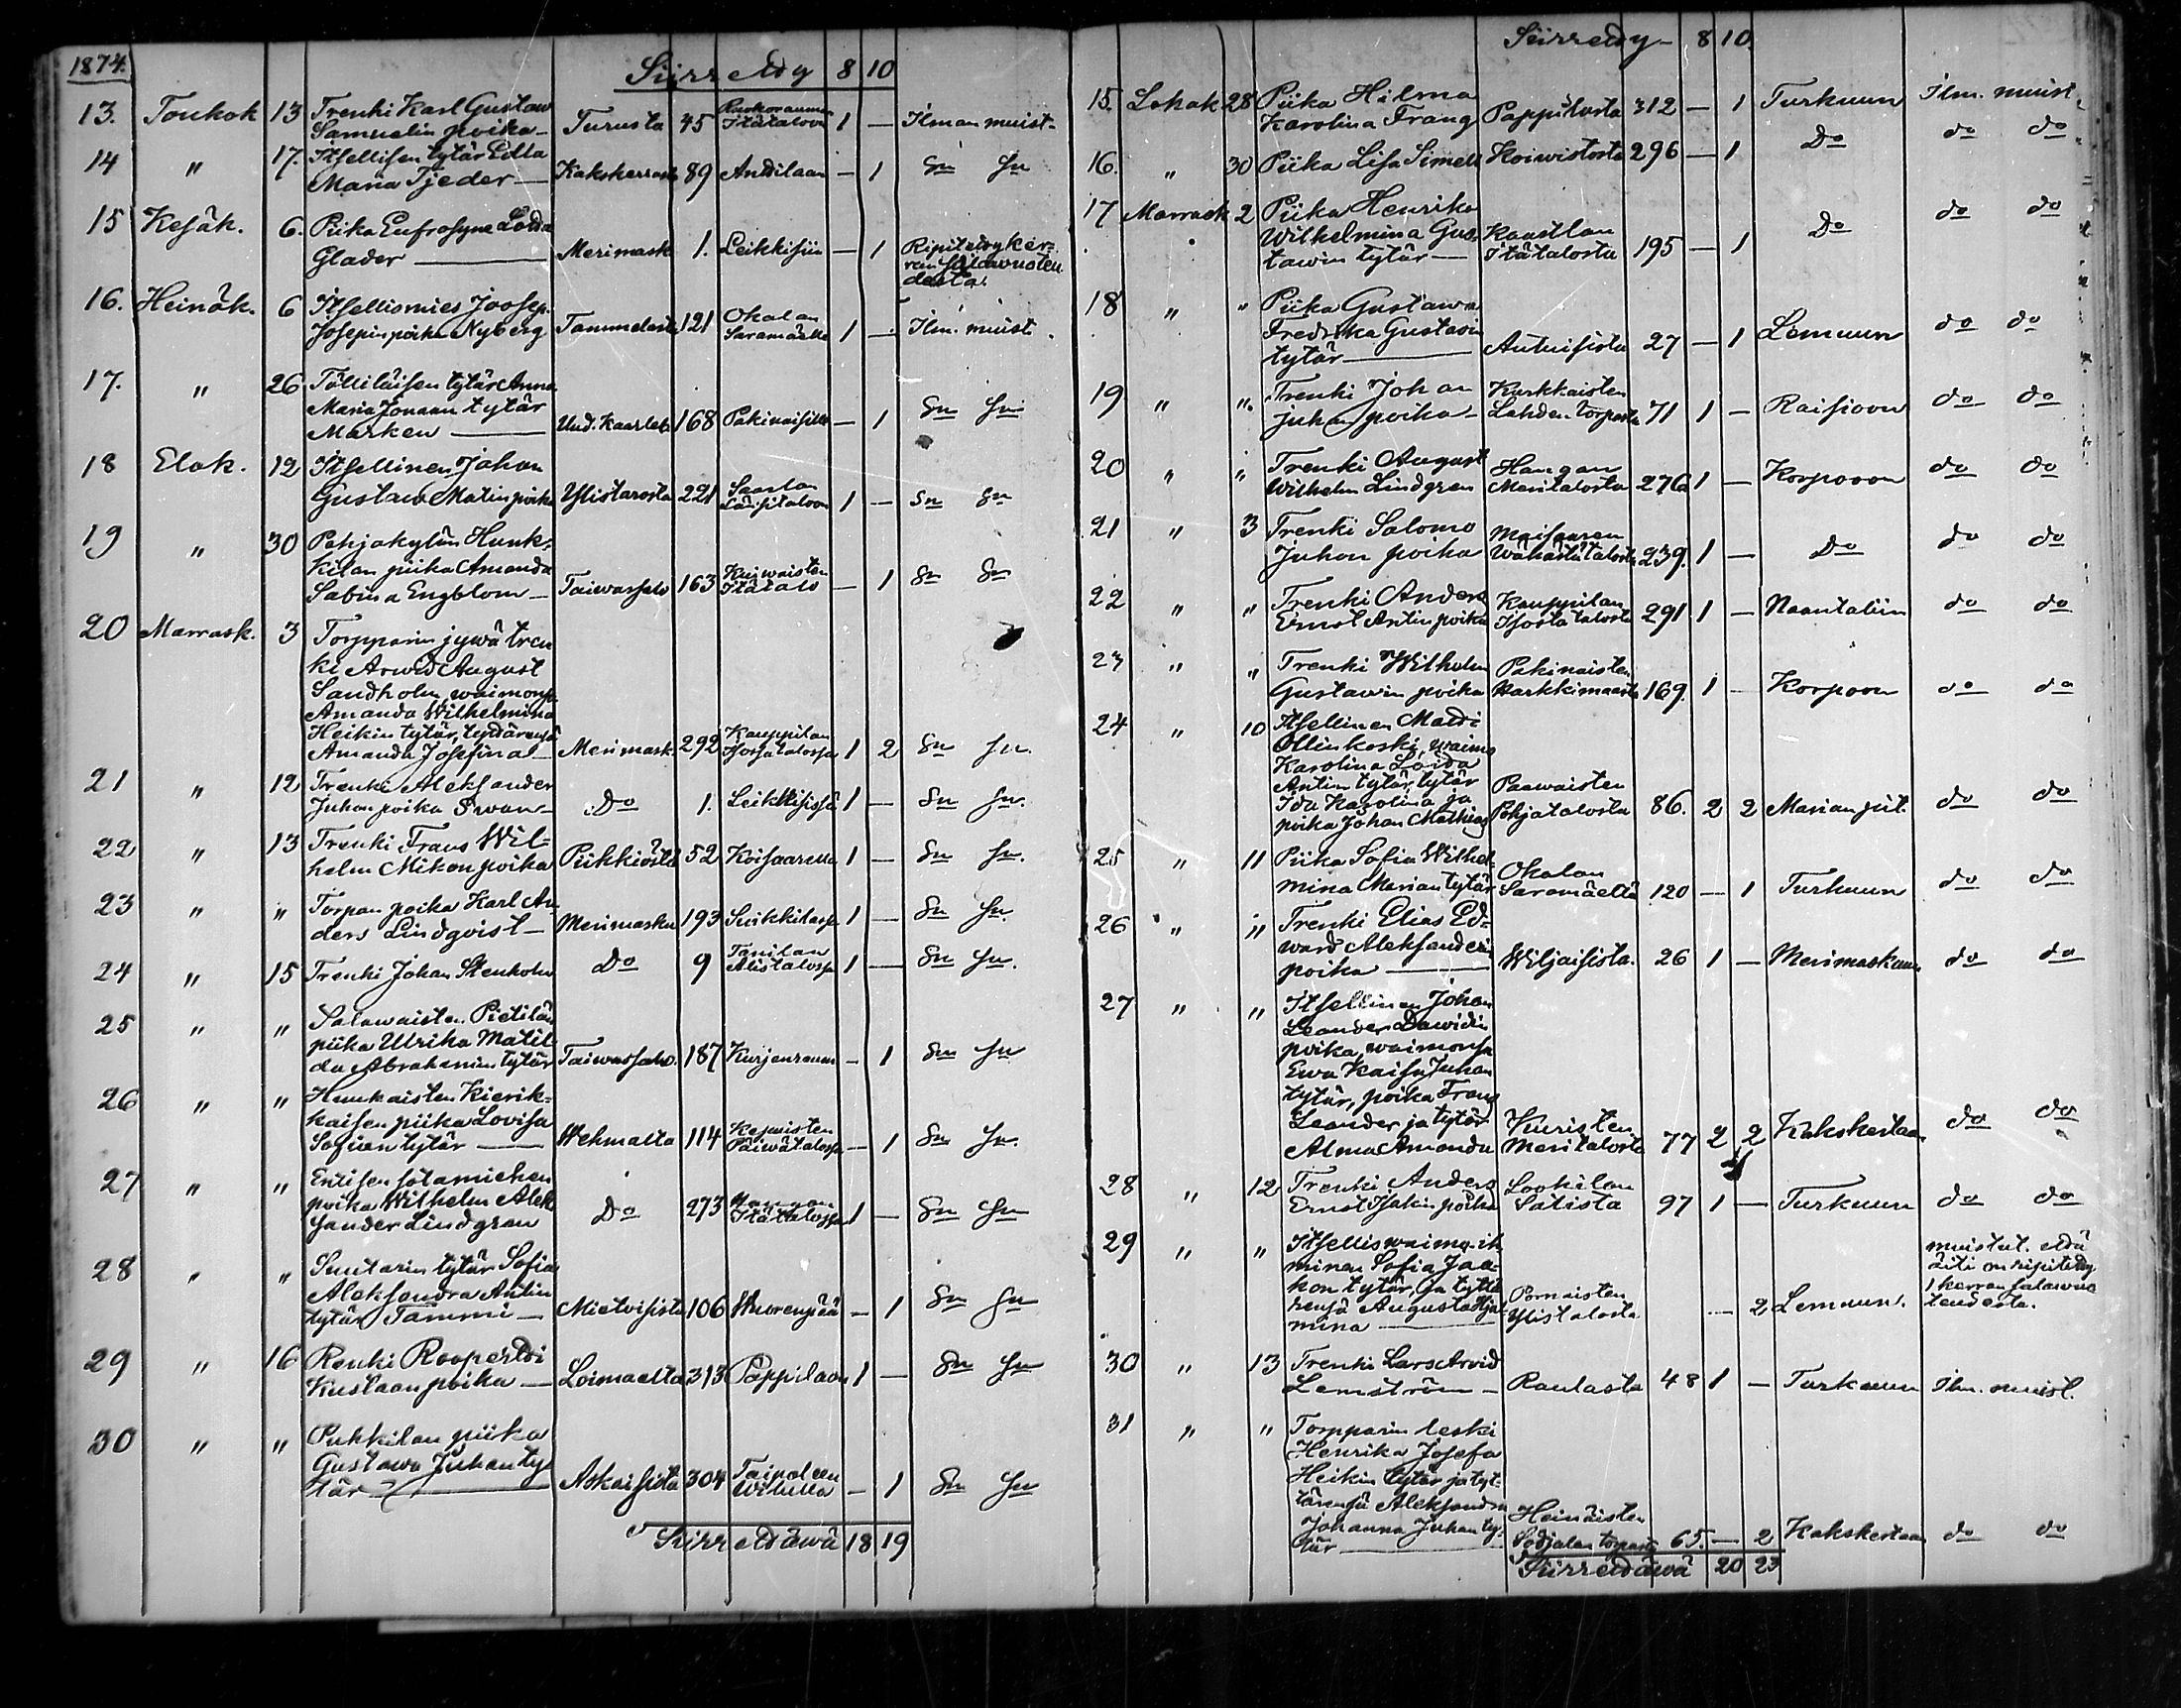 1874.
Siirretty 8 10
13. Toukok 13 Trenki Karl Gustaw
Samuelin poika — Turusta 45 Ruokorauman Itätaloon 1 — Ilman muist.
14 " 17. Itsellisen tytär Edla
Maria Tjeder — Kakskerrasta 89 Anttilaan — 1 Sn Sn
15 Kesäk. 6. Piika Eufrosyne Lovisa
Glader — Merimask 1. Leikkisiin — 1 Ripitetty ker-
ran salawuoteu
desta.
16. Heinäk. 6 Itsellismies Joosep.
Josepin poika Nyberg Tammelasta 121 Okalan Saramäelle 1 — Ilm. muist.
17. " 26 Tölliläisen tytär Anna
Maria Johaan tytär
Marken — Uud. Kaarleb 168 Pakinaisille — 1 Sn Sn
18 Elok. 12 Itsellinen Johan
Gustaw Matin poika Ylistarosta 221 Saarlan Länsitaloon 1 — Sn Sn
19 " 30 Pohjakylän Hunk-
kilan piika Amanda
Sabina Engblom — Taiwassalo 163 Kuiwaisten Itätalo — 1 Sn Sn
20 Marrask. 3 Torpparin jywä tren
ki Arwid August
Sandholm, waimonsa
Amanda Wilhelmina
Heikin tytär, tyttärensä
Amanda Josefina — Merimask 292 Kauppilan Isossatalossa 1 2 Sn Sn.
21 " 12 Trenki Aleksander
Juhan poika Swan — Do 1. Leikkisissä 1 — Sn Sn.
22 " 13 Trenki Frans Wil-
helm Mikon poika Piikkiöstä 52 Koisaarella 1 — Sn Sn.
23 " " Torpan poika Karl An
ders Lindqvist — Merimasku 193 Suikkilassa 1 — Sn Sn.
24 " 15 Trenki Johan Stenholm Do 9 Tanilan Alistalossa 1 — Sn Sn.
25 " " Salawaisten Pietilän
piika Ulrika Matil
da Abrahamin tytär Taiwassalo. 187 Kurjenrauma — 1 Sn Sn
26 " " Hunkaisten Kierik-
kaisen piika Lovisa
Sofian tytär — Wehmalta 114 Päiwätalossa — 1 Sn Sn.
27 " " Entisen sotamiehen
poika Wilhelm Alek
sander Lindgren Do 273 Hangan Itätalossa 1 — Sn Sn
28 " " Suutarin tytär Sofia
Aleksandra Antin
tytär Tammi — Mietoisista 106 Wuorenpää — 1 Sn Sn
29 " 16 Renki Rooperti
Kustaan poika — Loimaalta 313 Pappilaan 1 — Sn Sn
30 " " Puhkilan piika
Gustawa Juhan ty-
tär — Askaisista 304 Taipaleen Wilulla — 1 Sn Sn
Siirrettäwä 18 19
Siirretty — 8 10.
15. Lokak 28 Piika Hilma
Karolina Frang Pappilasta 312 — 1 Turkuun Ilm. muist.
16. " 30 Piika Lisa Simell Koiwistosta 296 — 1 Do do do
17 Marrask 2 Piika Henrika
Wilhelmina Gus-
tawin tytär — Kaastlan Itätalosta 195 — 1 Do do do
18 " " Piika Gustawa
Fredrika Gustawin
tytär — Autuisista 27 — 1 Lemuun do do
19 " " Trenki Johan
Juhan poika — Karkkaisten Lahden torpasta 71 1 — Raisioon do do
20 " " Trenki August
Wilhelm Lindgren Hangan Meritalosta 276 1 — Korpooon do do
21 " 3 Trenki Salomo
Juhan poika Maisaaren Wähästä talosta 239. 1 — Do do do
22 " " Trenki Anders
Ernst Antin poika Kauppilan Isosta talosta 291 1 — Naantaliin do do
23 " " Trenki Wilhelm
Gustawin poika Pakinaisten Karkkimaasta 169. 1 — Korpoon do do
24 " 10 Itsellinen Matti
Ollinkoski, waimo
Karolina Lovisa
Antin tytär, tytär
Ida Karolina ja
poika Johan Mathias Paawaisten Pohjatalosta 86. 2 2 Marian pit. do do
25 " 11 Piika Sofia Wilhel-
mina Marian tytär Okalan Saramäeltä 120 — 1 Turkuun do do
26 " 11 Trenki Elias Ed-
ward Aleksanderin
poika — Wiljaisista. 26 1 — Merimaskuun do do
27 " " Itsellinen Johan
Leander Dawidin
poika, waimonsa
Ewa Kaisa Juhan
tytär, poika Frans
Leander ja tytär
Alma Amanda Kuristen Meritalosta 77 2 2 Kakskertaan do do
28 " 12 Trenki Anders
Ernst Isakin poika Lookilan Satista 97 1 — Turkuun do do
29 " " Itsellis waimo ih
minen Sofia Jaa-
kon tytär, ja tyttä
rensä Augusta Hja
mina — Pornaisten Ylistalosta — 2 Lemuun. muistut. että
äiti on ripitetty
1 kerran salawuo
teudesta.
30 " 13 Trenki Lars Arvid
Lemström — Raulasta 48 1 — Turkuun Ilm. muist.
31 " " Torpparin leski
Henrika Josefa
Heikin tytär ja tyt-
tärensä Aleksandra
Johanna Juhan ty-
tär — Heinäisten Sedjalan torpasta 65. — 2 Kakskertaan do do
Siirrettäwä 20 23